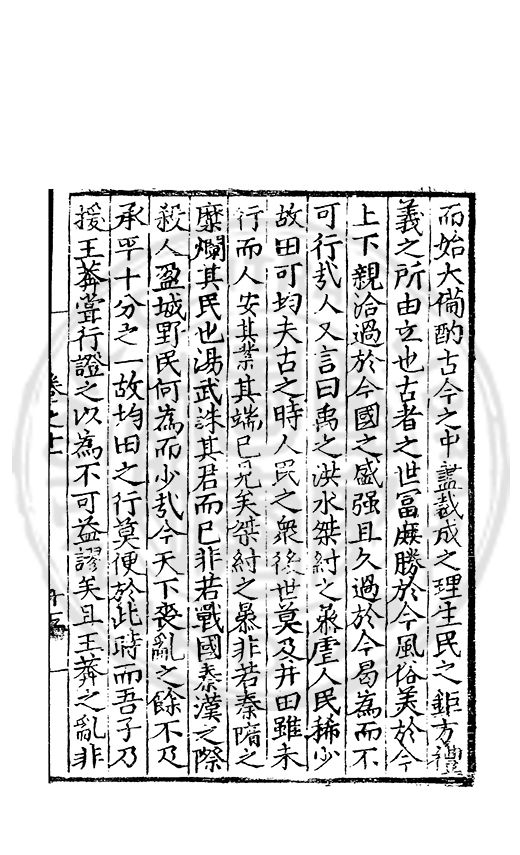 而始大備酌古今之中盡裁成之理生民之鉅方禮
義之所由立也古者之世富庶勝於今風俗美於今
上下親洽過於今國之盛强且久過於今曷為而不
可行㢤人又言曰禹之洪水桀紂之暴虐人民稀少
故田可均夫古之時人民之衆後世莫及井田雖未
行而人安其業其端已見矣桀紂之暴非若秦隋之
糜爛其民也湯武誅其君而已非若戰國秦漢之際
殺人盈城野民何為而少㢤今天下喪亂之餘不及
承平十分之一故均田之行莫便於此時而吾子乃
援王莽嘗行證之以為不可益謬矣且王莽之亂非
卷之十一